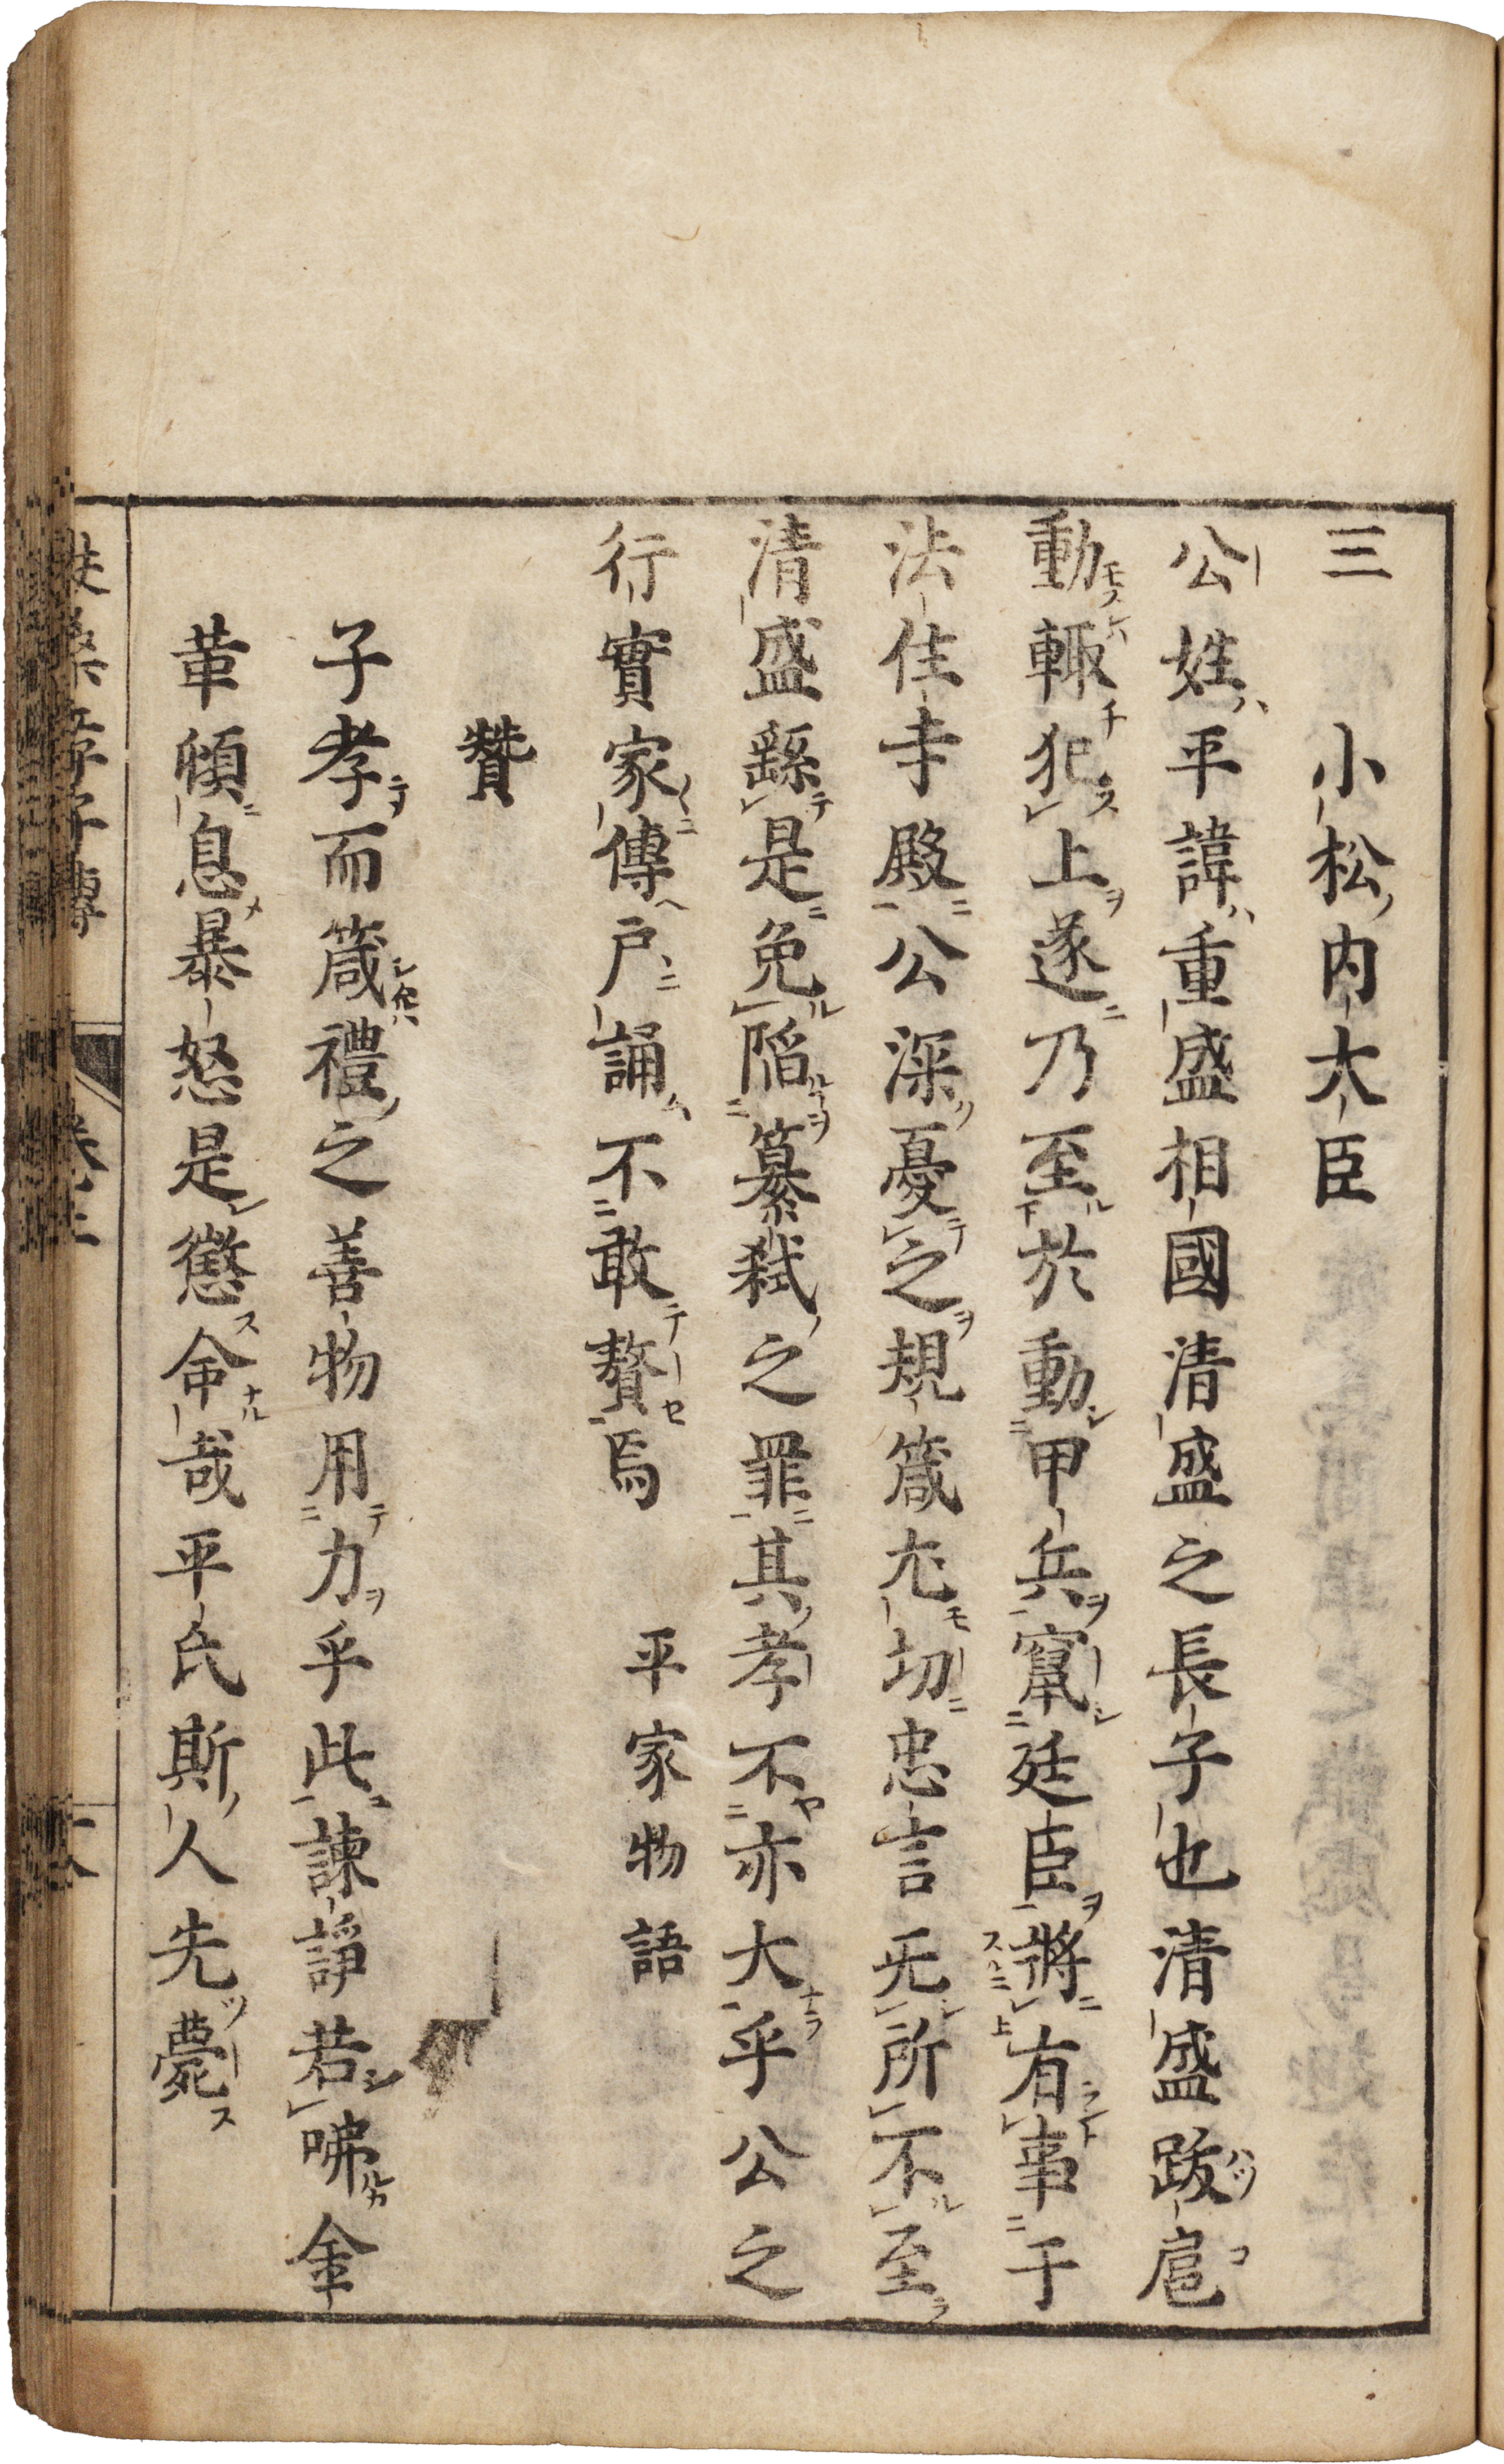 三　小松内大臣
公姓平諱重盛相國清盛之長子也清盛跋扈
動輙犯上遂乃至於動甲兵竄廷臣將有事于
法住寺殿公深憂之規箴尤切忠言无所不至
清盛繇是免陷簒弑之罪其孝不亦大乎公之
行實家傳戸誦不敢贅焉　平家物語
贊
子孝而箴禮之善物用力乎此諫諍若咈金
革頓息暴怒是懲命哉平氏斯人先薨